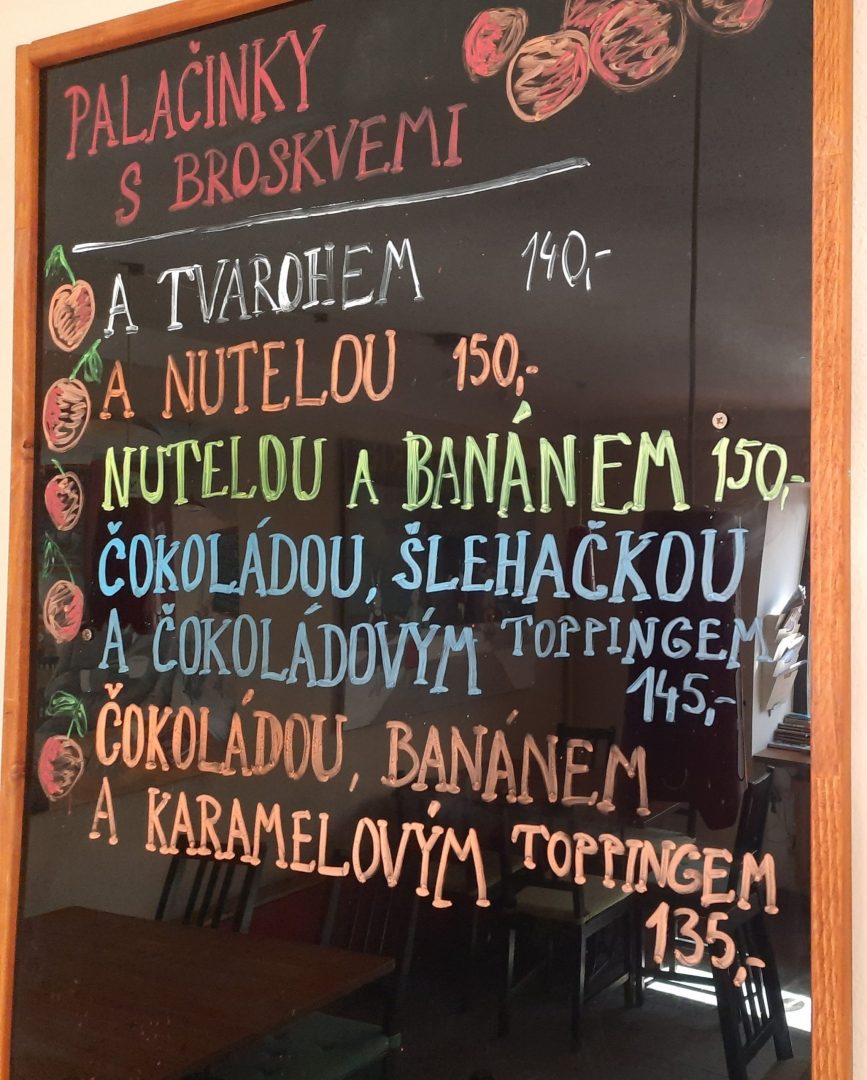 PALAČINKY
S BROSKVEMI
A TVAROHEM 140,-
A NUTELOU 150,-
NUTELOU A BANÁNEM 150,-
ČOKOLÁDOU, ŠLEHAČKOU
A ČOKOLÁDOVÝM TOPPINGEM
145,-
ČOKOLÁDOU, BANÁNEM
A KARAMELOVÝM TOPPINGEM
135,-